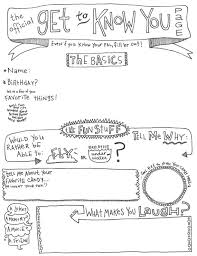 the official GET to KNOW YOU PAGE
Even if you know your pal, fill 'er out!
THE BASICS
*NAME:
*BIRTHDAY?
FAVORITE THINGS!
FUN STUFF
WOULD YOU RATHER BE ABLE TO:
FLY OR BREATHE under water?
TELL ME WHY:
TELL ME ABOUT YOUR FAVORITE CANDY...
WHAT MAKES YOU LAUGH
A JOKE?
A MEMORY?
A MOVIE?
A FRIEND?